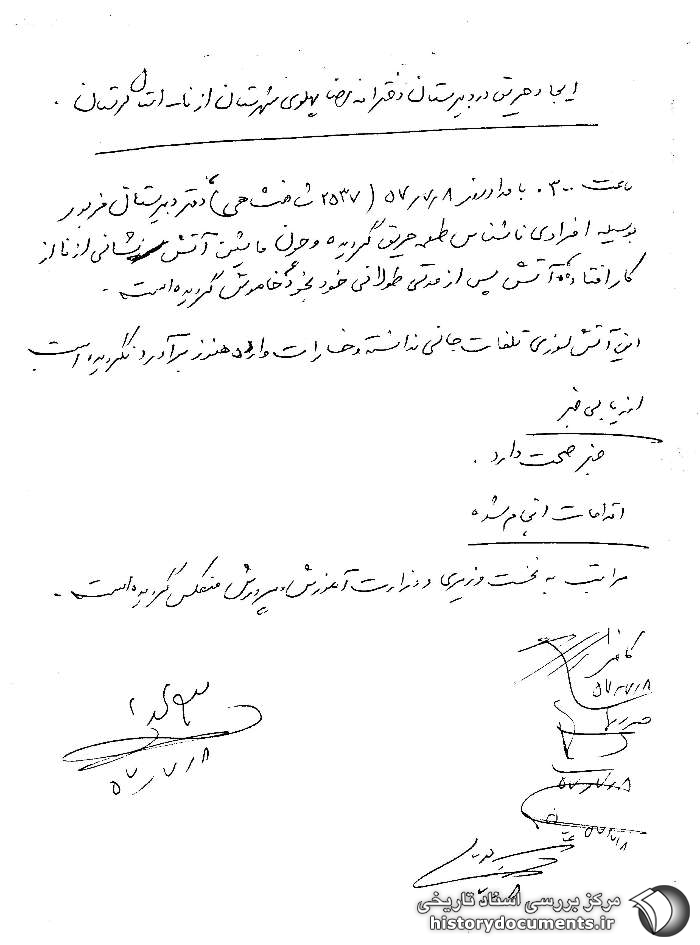 ایجاد حریق در دبیرستان دخترانه رضا پهلوی شهرستان از نا استان لرستان .
ساعت ۰۳۰۰ بامداد روز ۵۷٫۷٫۸ (۲۵۳۷ شاهنشاهی) دفتر دبیرستان مزبور
بوسیله افرادی ناشناس طعمه حریق گردیده و چون ماشین آتش نشانی از نا از
کار افتاده آتش پس از مدتی طولانی خود بخود خاموش گردیده است .
این آتش سوزی تلفات جانی نداشته و خسارات وارده هنوز برآورد نگردیده است
ارزیابی خبر
خبر صحت دارد .
اقدامات انجام شده
مراتب به نخست وزیری و وزارت آموزش و پرورش منعکس گردیده است .
۵۷٫۷٫۸
۵۷٫۷٫۸
۵۷٫۷٫۸
۵۷٫۷٫۸
مرکز بررسی اسناد تاریخی
historydocuments.ir